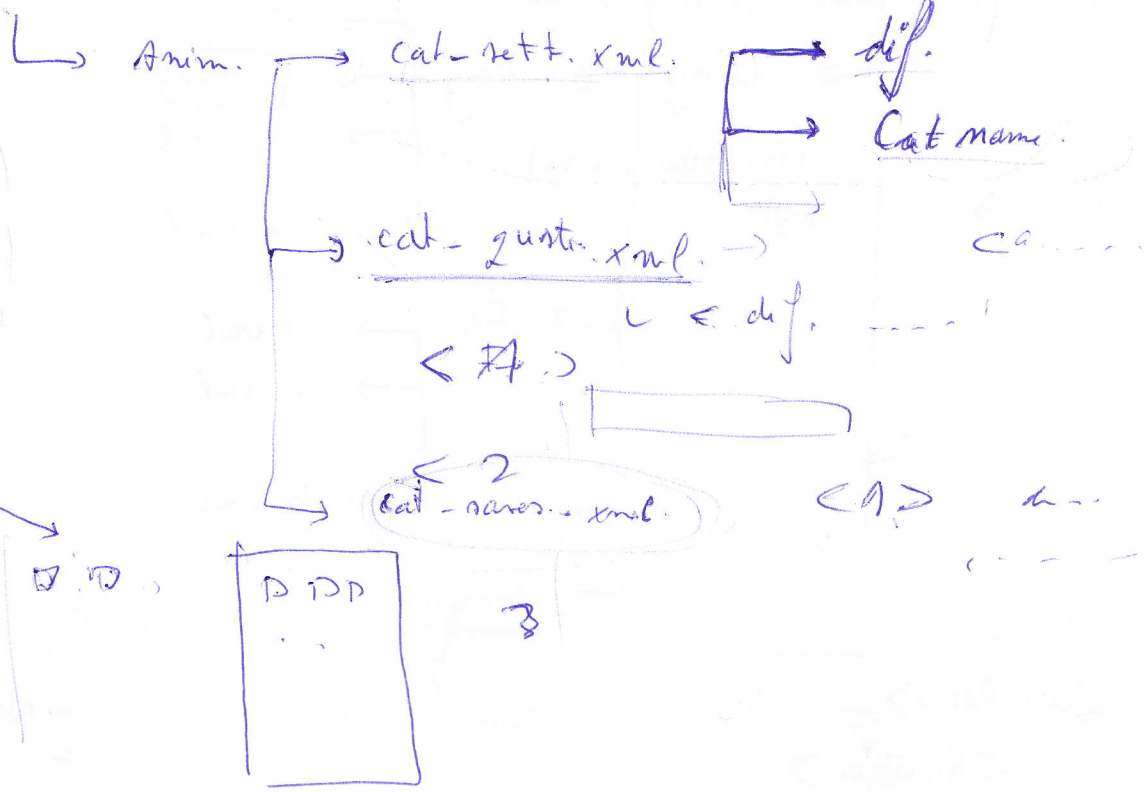 Anim. cat_sett. xml. dif.
Cat name.
cat_questi. xml.
< dif.
<
< 2
cat_saves.. xml. <1>
D DD
3